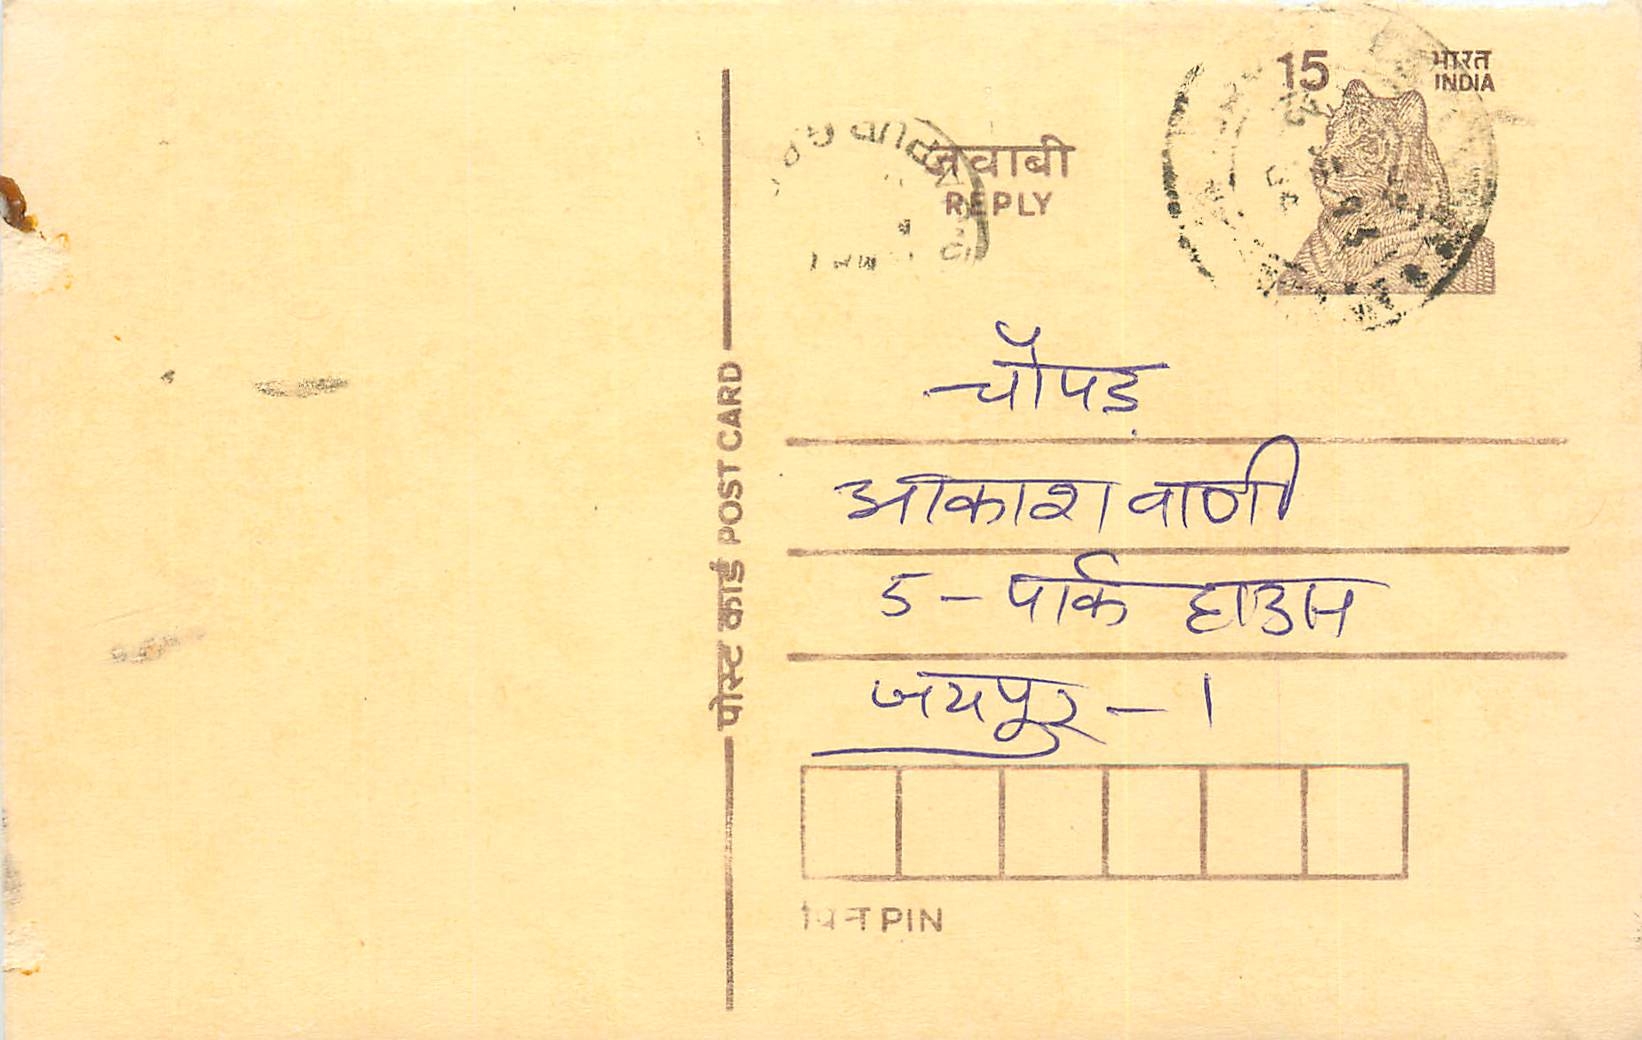 15 भारत
INDIA
जवाबी
REPLY
पोस्ट कार्ड POST CARD
चौपड़
आकाशवाणी
5 - पार्क हाउस
जयपुर - 1
पिन PIN